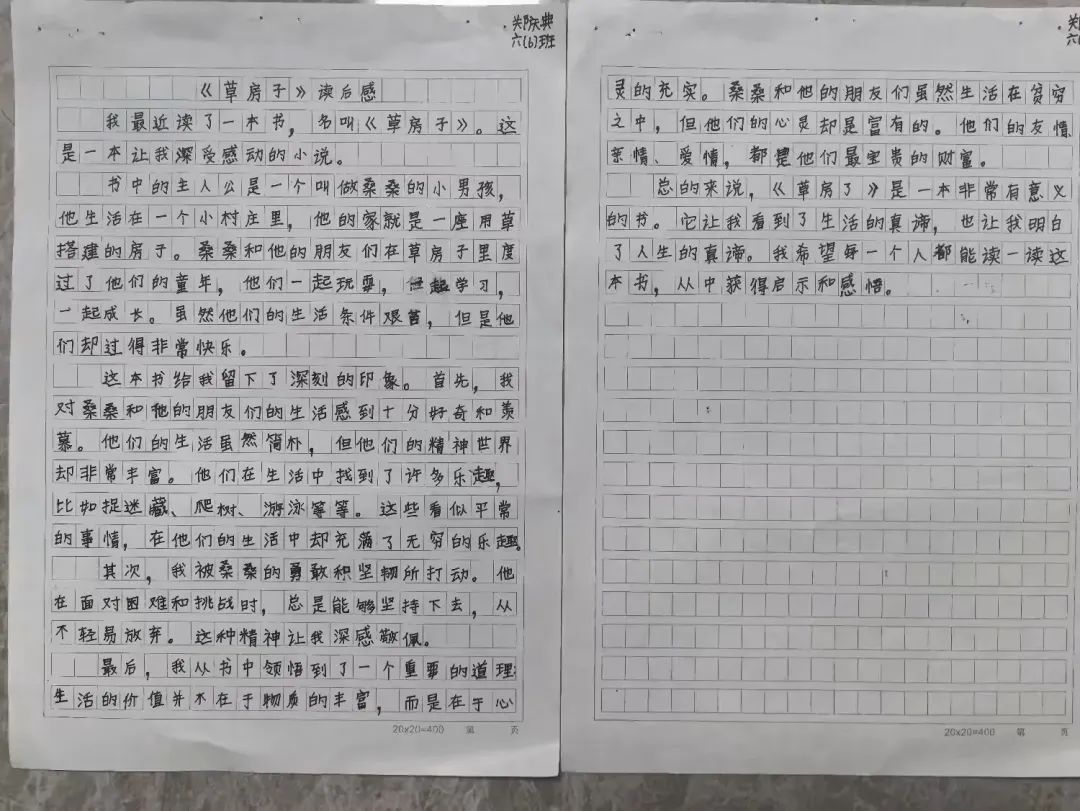 关陈庆典
六(6)班
《草房子》读后感
我最近读了一本书，名叫《草房子》。这
是一本让我深受感动的小说。
书中的主人公是一个叫做桑桑的小男孩，
他生活在一个小村庄里，他的家就是一座用草
搭建的房子。桑桑和他的朋友们在草房子里度
过了他们的童年，他们一起玩耍，一起学习，
一起成长。虽然他们的生活条件艰苦，但是他
们却过得非常快乐。
这本书给我留下了深刻的印象。首先，我
对桑桑和他的朋友们的生活感到十分好奇和羡
慕。他们的生活虽然简朴，但他们的精神世界
却非常丰富。他们在生活中找到了许多乐趣，
比如捉迷藏、爬树、游泳等等。这些看似平常
的事情，在他们的生活中却充满了无穷的乐趣。
其次，我被桑桑的勇敢和坚韧所打动。他
在面对困难和挑战时，总是能够坚持下去，从
不轻易放弃。这种精神让我深感敬佩。
最后，我从书中领悟到了一个重要的道理
生活的价值并不在于物质的丰富，而是在于心
20×20=400 第 页
六(6
灵的充实。桑桑和他的朋友们虽然生活在贫穷
之中，但他们的心灵却是富有的。他们的友情
亲情、爱情，都是他们最宝贵的财富。
总的来说，《草房了》是一本非常有意义
的书。它让我看到了生活的真谛，也让我明白
了人生的真谛。我希望每一个人都能读一读这
本书，从中获得启示和感悟。
20×20=400 第 页